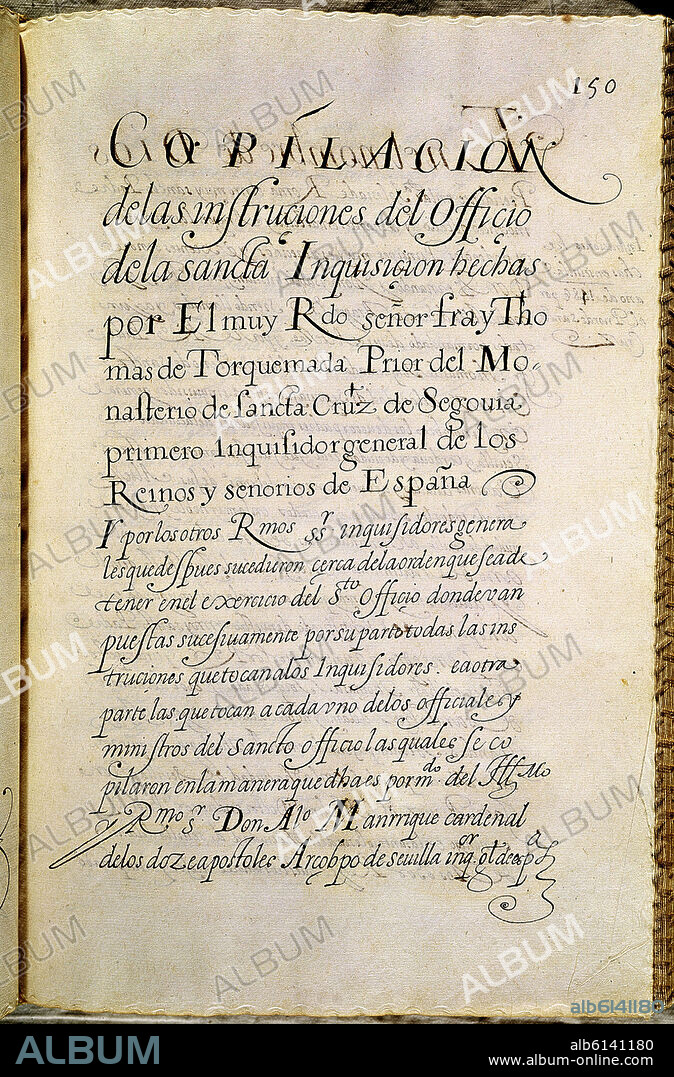 150
COPILACION
delas instruciones del Officio
dela sancta Inquisiçion hechas
por El muy Rdo señor fray Tho
mas de Torquemada Prior del Mo-
nasterio de sancta Cruz de Segouia
primero Inquisidor general de los
Reinos y señorios de España
Y por los otros Rmos ssr inquisidores genera
les que despues sucedieron, cerca dela orden que sea de
tener en el exercicio del Sto Officio donde van
puestas sucesiuamente por su parte todas las ins
truciones que tocan a los Inquisidores. ea otra
parte las que tocan a cada vno delos officiales y
ministros del sancto officio las quales se co
pilaron en la manera que dha es por mdo del Illmo
y Rmo sr Don Alo Manrrique cardenal
delos doze apostoles Arcobpo de seuilla inqor gl de esp
ALBUM
alb6141180
alb6141180
www.album-online.com